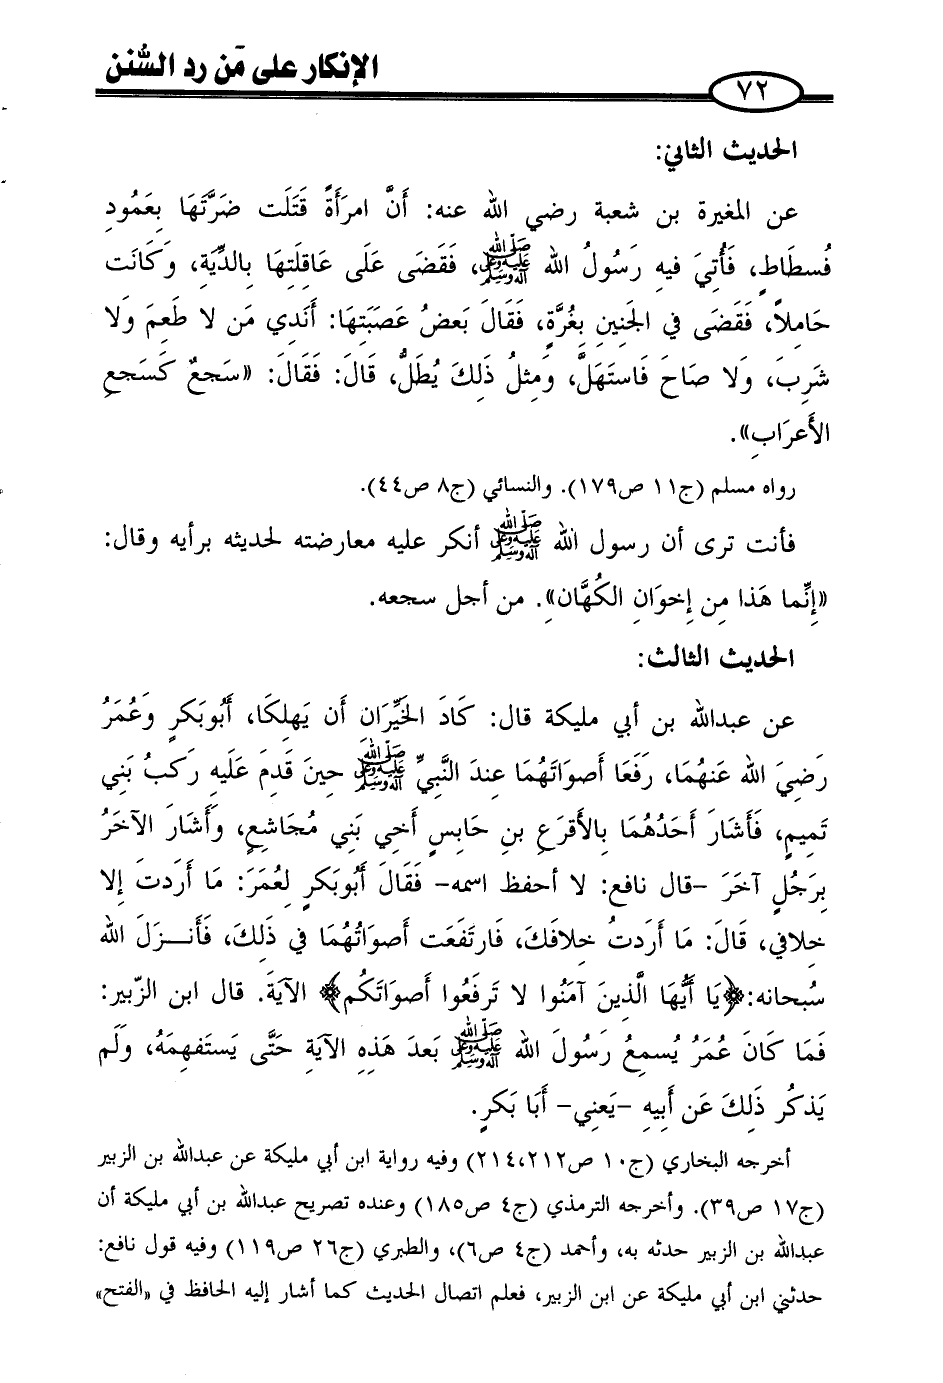 الإنكار على مَن رد السُّنن
٧٢
الحديث الثاني:
عن المغيرة بن شعبة رضي الله عنه: أَنَّ امرَأَةً قَتَلَت ضَرَّتَهَا بِعَمُودِ
فُسطَاطٍ، فَأُتِيَ فيهِ رَسُولُ الله ﷺ، فَقَضَى عَلَى عَاقِلَتِهَا بِالدِّيَةِ، وَكَانَت
حَامِلاً، فَقَضَى في الجَنِينِ بِغُرَّةٍ، فَقَالَ بَعضُ عَصَبَتِهَا: أَنَدِي مَن لا طَعِمَ وَلا
شَرِبَ، وَلا صَاحَ فَاستَهَلَّ، وَمِثلُ ذَلِكَ يُطَلُّ، قَالَ: فَقَالَ: «سَجعٌ كَسَجعِ
الأَعرَابِ».
رواه مسلم (ج١١ ص١٧٩). والنسائي (ج٨ ص٤٤).
فأنت ترى أن رسول الله ﷺ أنكر عليه معارضته لحديثه برأيه وقال:
«إِنَّما هَذا مِن إِخوَانِ الكُهَّان». من أجل سجعه.
الحديث الثالث:
عن عبدالله بن أبي مليكة قال: كَادَ الخَيِّرَانِ أَن يَهلِكَا، أَبُوبَكرٍ وَعُمَرُ
رَضِيَ الله عَنهُمَا، رَفَعَا أَصوَاتَهُمَا عِندَ النَّبِيِّ ﷺ حِينَ قَدِمَ عَلَيهِ رَكبُ بَنِي
تَمِيمٍ، فَأَشَارَ أَحَدُهُمَا بِالأَقرَعِ بنِ حَابِسٍ أَخِي بَنِي مُجَاشِعٍ، وَأَشَارَ الآخَرُ
بِرَجُلٍ آخَرَ -قال نافع: لا أحفظ اسمه- فَقَالَ أَبُوبَكرٍ لِعُمَرَ: مَا أَرَدتَ إِلا
خِلافِي، قَالَ: مَا أَرَدتُ خِلافَكَ، فَارتَفَعَت أَصوَاتُهُمَا فِي ذَلِكَ، فَأَنـزَلَ الله
سُبحانه:﴿يَا أَيُّهَا الَّذِينَ آمَنُوا لا تَرفَعُوا أَصوَاتَكُم﴾ الآيَةَ. قال ابن الزّبير:
فَمَا كَانَ عُمَرُ يُسمِعُ رَسُولَ الله ﷺ بَعدَ هَذِهِ الآيَةِ حَتَّى يَستَفهِمَهُ، وَلَم
يَذكُر ذَلِكَ عَن أَبِيهِ -يَعنِي- أَبَا بَكرٍ.
أخرجه البخاري (ج١٠ ص٢١٢،٢١٤) وفيه رواية ابن أبي مليكة عن عبدالله بن الزبير
(ج١٧ ص٣٩). وأخرجه الترمذي (ج٤ ص١٨٥) وعنده تصريح عبدالله بن أبي مليكة أن
عبدالله بن الزبير حدثه به، وأحمد (ج٤ ص٦)، والطبري (ج٢٦ ص١١٩) وفيه قول نافع:
حدثني ابن أبي مليكة عن ابن الزبير، فعلم اتصال الحديث كما أشار إليه الحافظ في «الفتح»